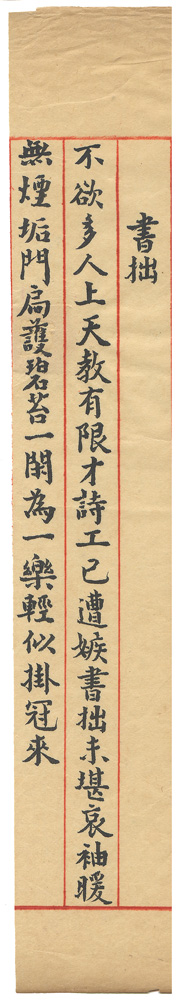 書拙
不欲多人上天教有限才詩工已遭嫉書拙未堪哀袖暖
無煙垢門扃護碧苔一閑為一樂輕似掛冠來